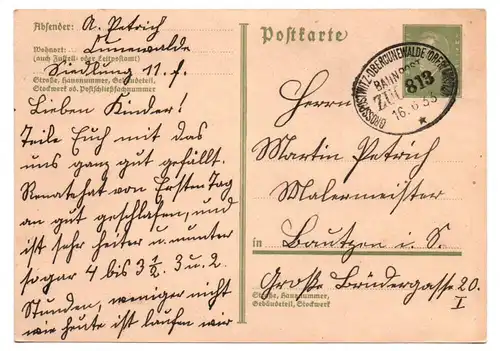 Absender: A. Petrich
Wohnort:
(auch Zustell- oder Leitpostamt)
Siedlung 11. f.
Straße, Hausnummer, Gebäudeteil,
Stockwerk od. Postschließfachnummer
Lieben Kinder!
Teile Euch mit das
uns ganz gut gefällt.
Renate hat von Ersten Tag
an gut geschlafen, und
ist sehr heiter u. munter
sogar 4 bis 3 ½. 3 u. 2.
Stunden, weniger nicht
wie heute ist laufen wir
Postkarte
BAHNPOST
ZUG 813
16.6.33
Herrn
Martin Petrich
Malermeister
in Bautzen i. S.
Große Brüdergasse 20.
I
Straße, Hausnummer,
Gebäudeteil, Stockwerk